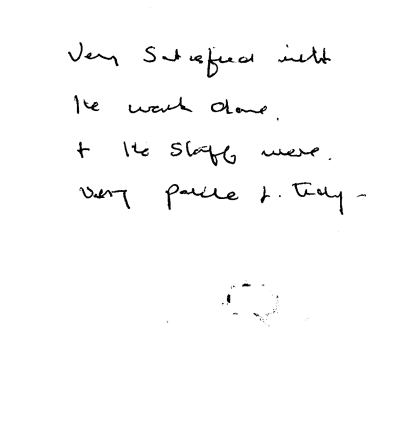 Very Satisfied with
the work done.
+ the Staff were.
very polite &. Tidy -